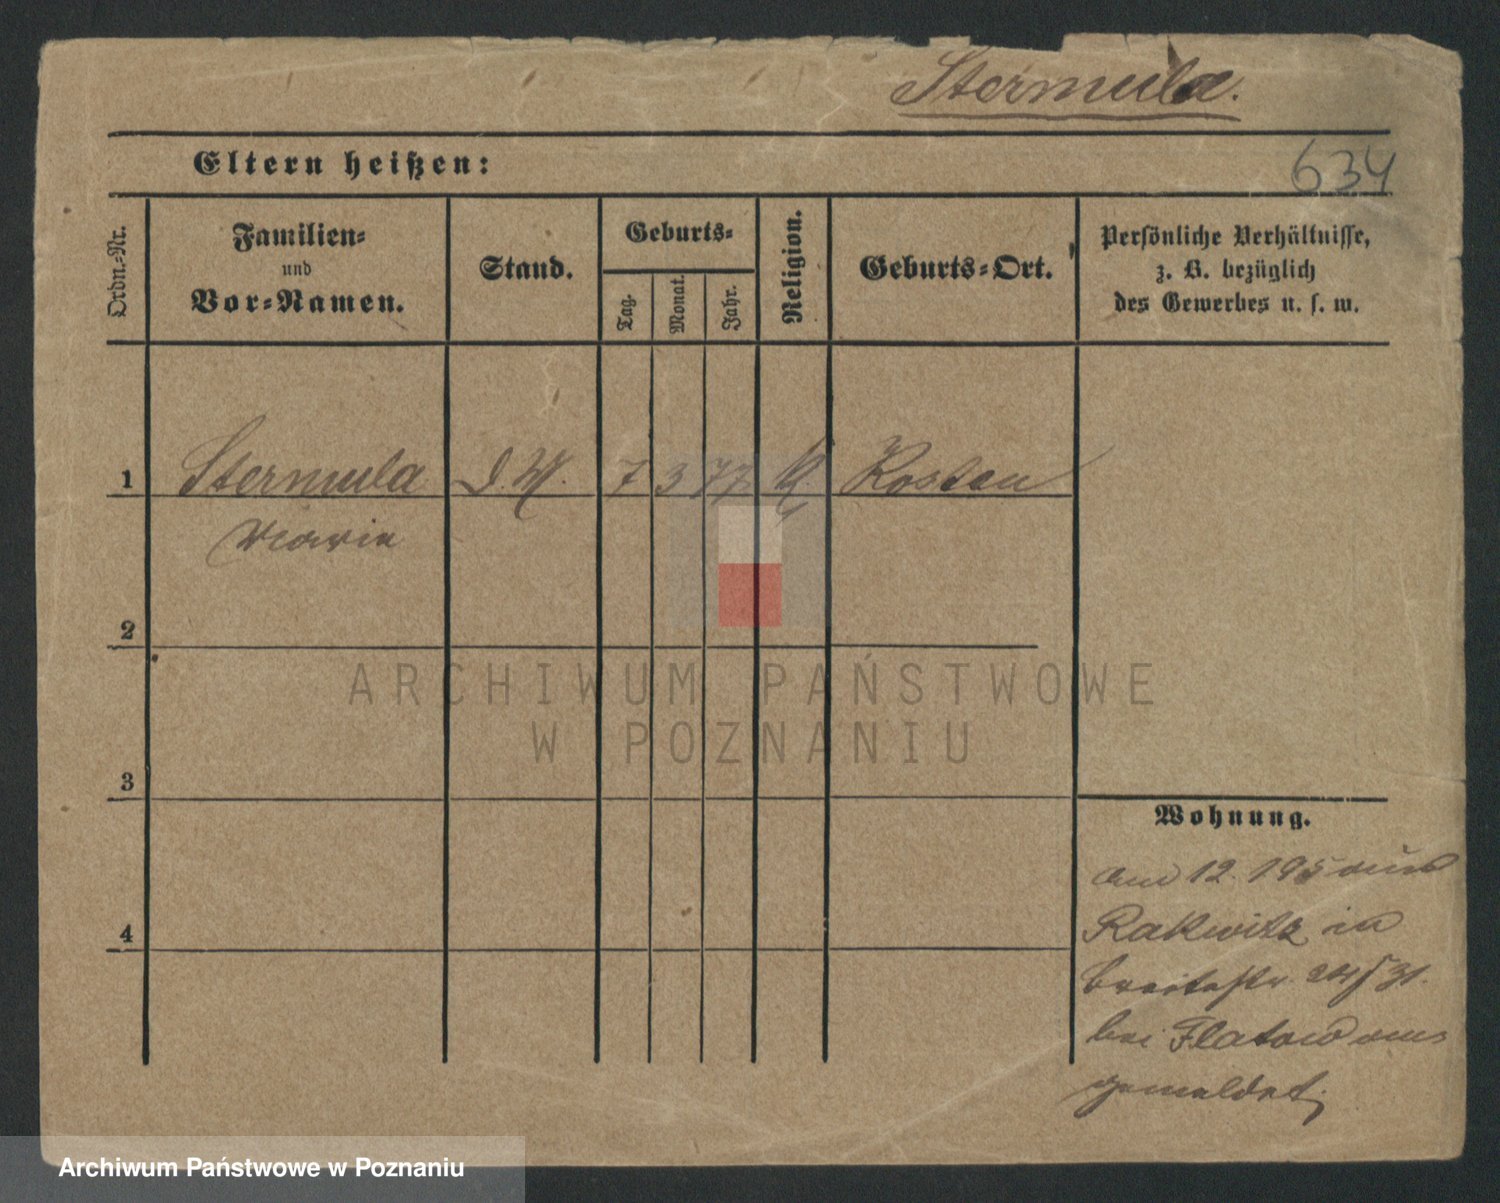 Stermula.
Eltern heißen:
634
Ordn.-Nr.
Familien-
und
Vor-Namen.
Stand.
Geburts-
Tag.
Monat.
Jahr.
Religion.
Geburts-Ort.
Persönliche Verhältnisse,
z. B. bezüglich
des Gewerbes u. s. w.
1 Stermula D. M. 7 3 77 K Kosten
Marie
2
3
4
Wohnung.
am 12. 195 aus
Rakwitz in
Breitestr. 24
bei Flatow an
gemeldet.
ARCHIWUM PAŃSTWOWE
W POZNANIU
Archiwum Państwowe w Poznaniu